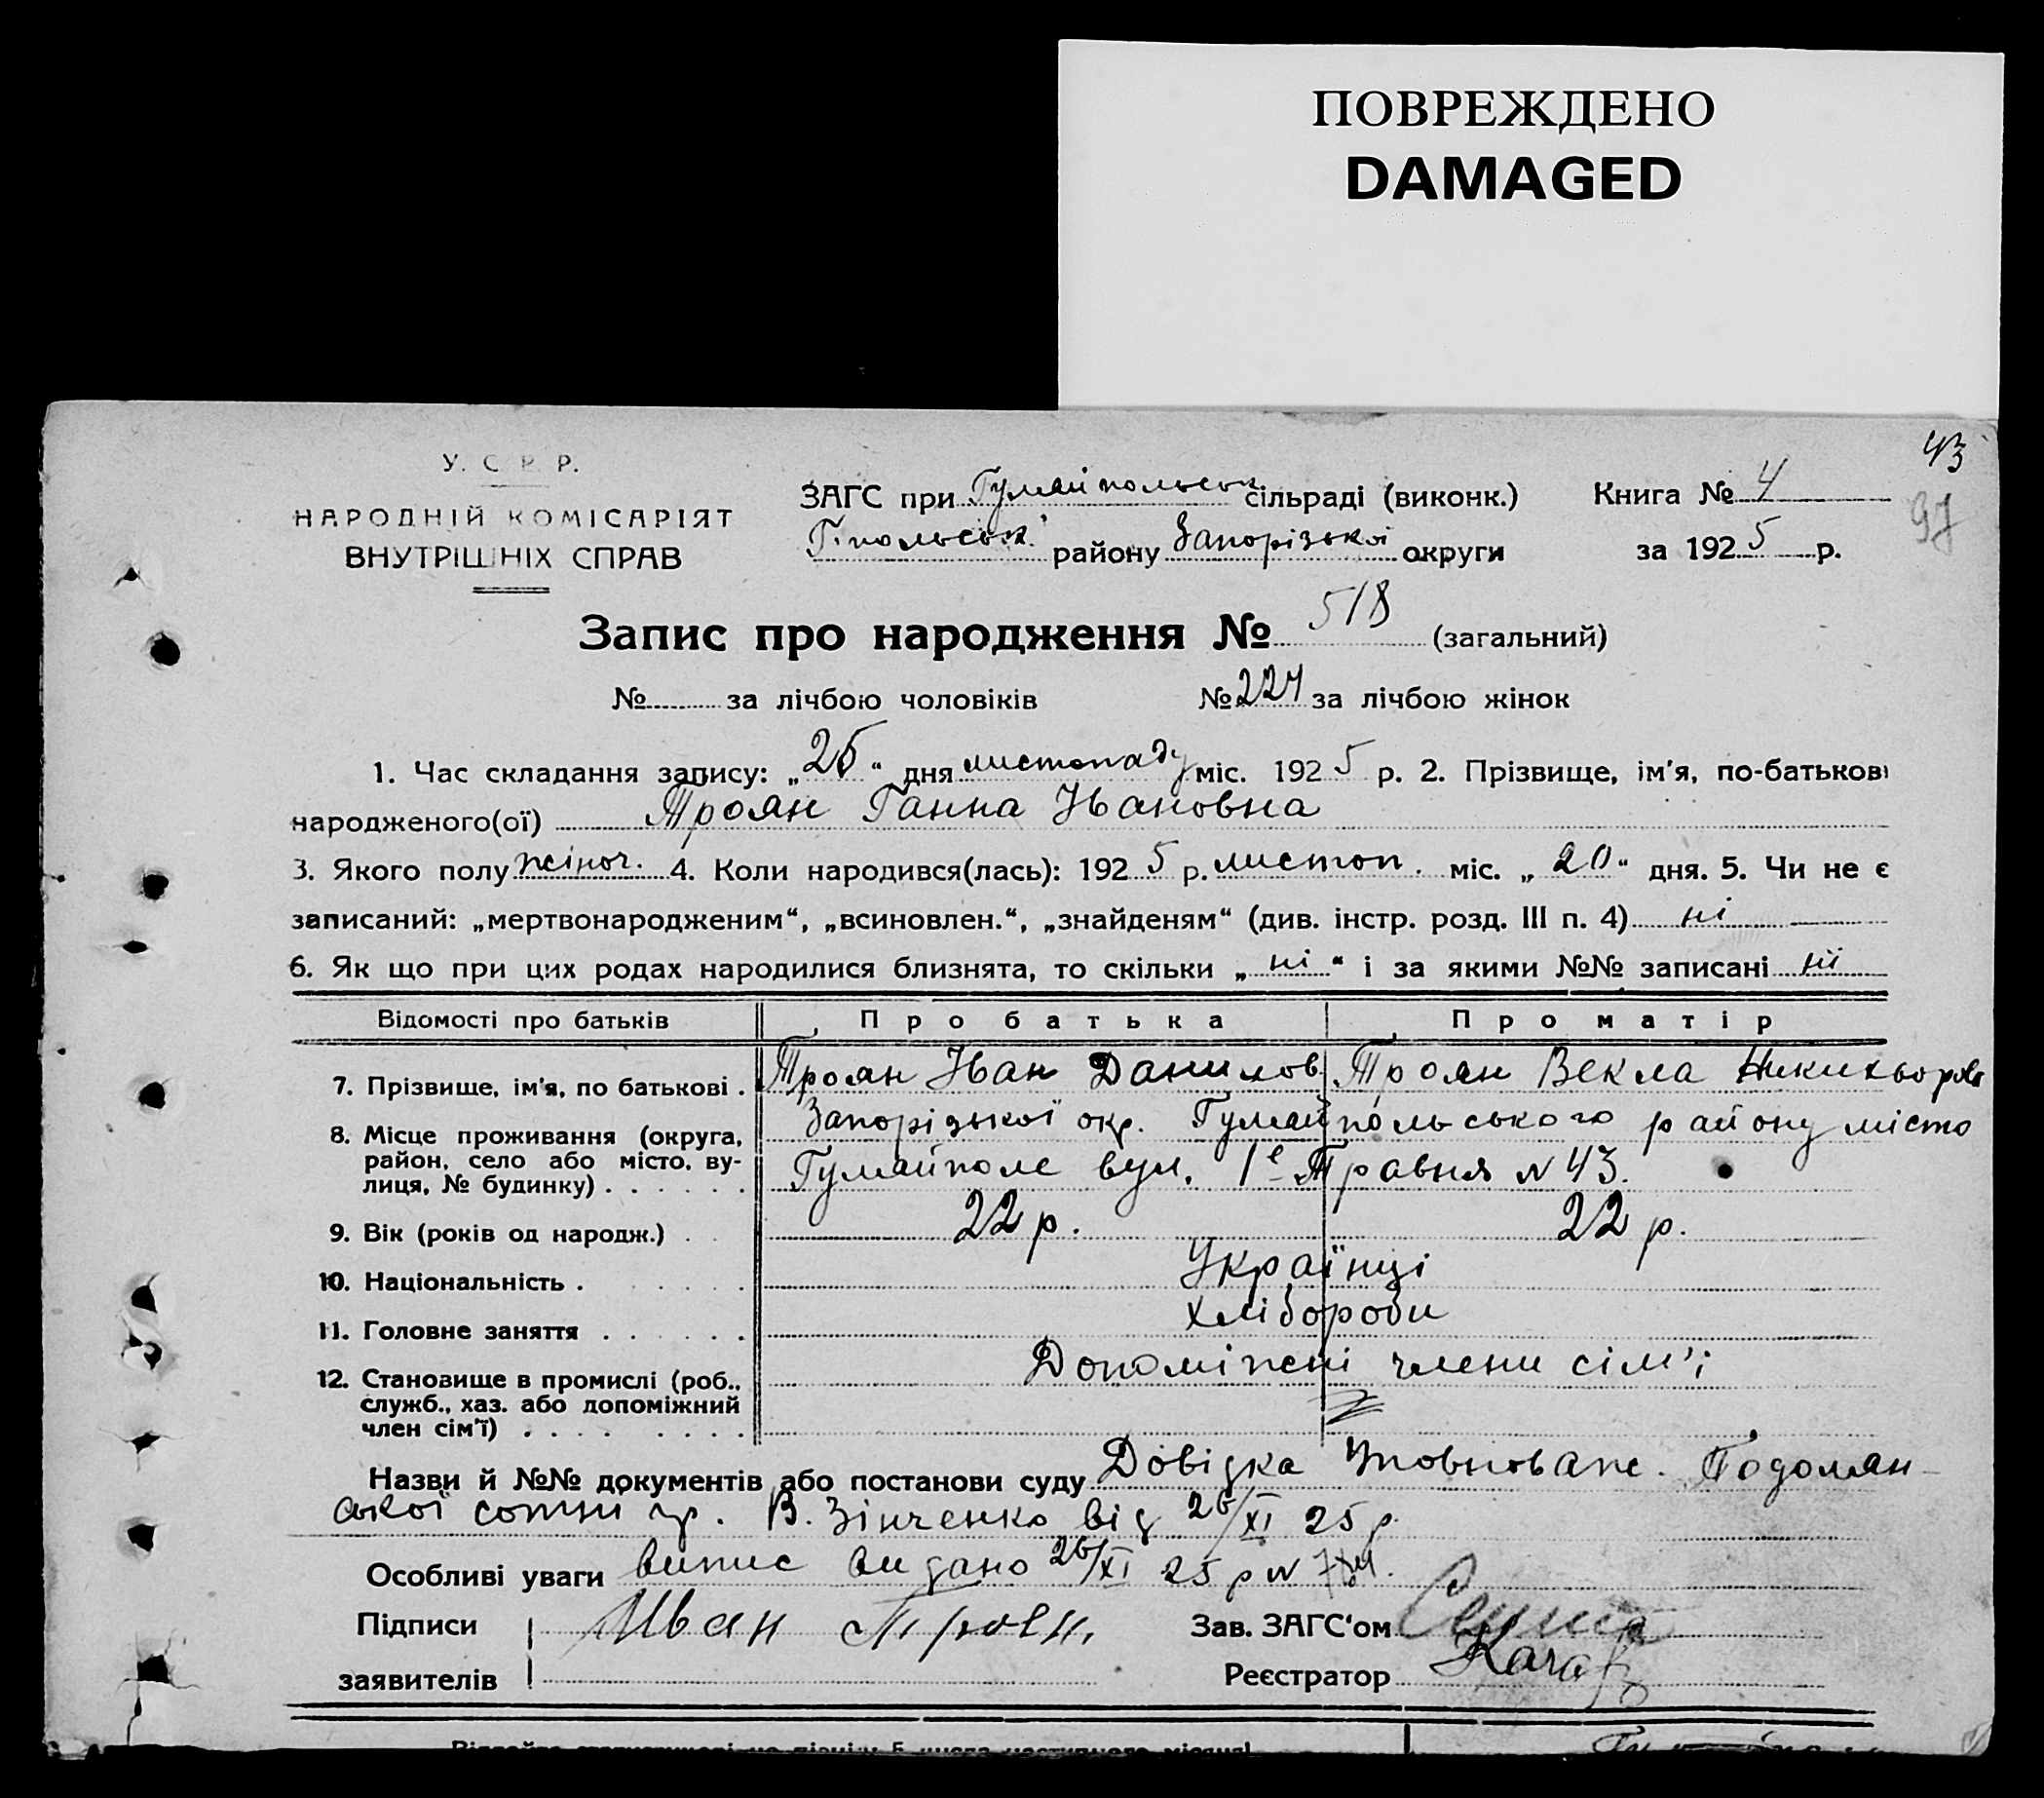 ПОВРЕЖДЕНО
DAMAGED
43
97
У. С. Р. Р.
НАРОДНІЙ КОМІСАРІЯТ
ВНУТРІШНІХ СПРАВ
ЗАГС при Гуляйпольськ сільраді (виконк.) Книга № 4
Г.польськ. району Запорізької округи за 1925 р.
Запис про народження № 518 (загальний)
№ за лічбою чоловіків № 224 за лічбою жінок
1. Час складання запису: „26“ дня листопаду міс. 1925 р. 2. Прізвище, ім'я, по-батькові
народженого(ої) Троян Ганна Ивановна
3. Якого полу жіноч. 4. Коли народився(лась): 1925 р. листоп. міс. „20“ дня. 5. Чи не є
записаний: „мертвонародженим“, „всиновлен.“, „знайденям“ (див. інстр. розд. III п. 4) ні
6. Як що при цих родах народилися близнята, то скільки „ні“ і за якими №№ записані ні
Відомості про батьків Про батька Про матір
7. Прізвище, ім'я, по батькові . Троян Иван Данилов Троян Векла Никихворов
8. Місце проживання (округа, район, село або місто, вулиця, № будинку) Запорізької окр. Гуляйпольського району місто
Гуляйполе вул. 1е Травня N 43.
9. Вік (років од народж.) 22 р. 22 р.
10. Національність . Українці
11. Головне заняття Хлібороби
12. Становище в промислі (роб., Допоміжні члени сім'ї
служб., хаз. або допоміжний
член сім'ї)
Назви й №№ документів або постанови суду Довідка Уповноваж. Подолян-
ської сотни гр. В. Зінченко від 26/XI 25 р.
Особливі уваги випис видано 26/XI 25 р N
Підписи Иван Троян. Зав. ЗАГС'ом
заявителів Реєстратор